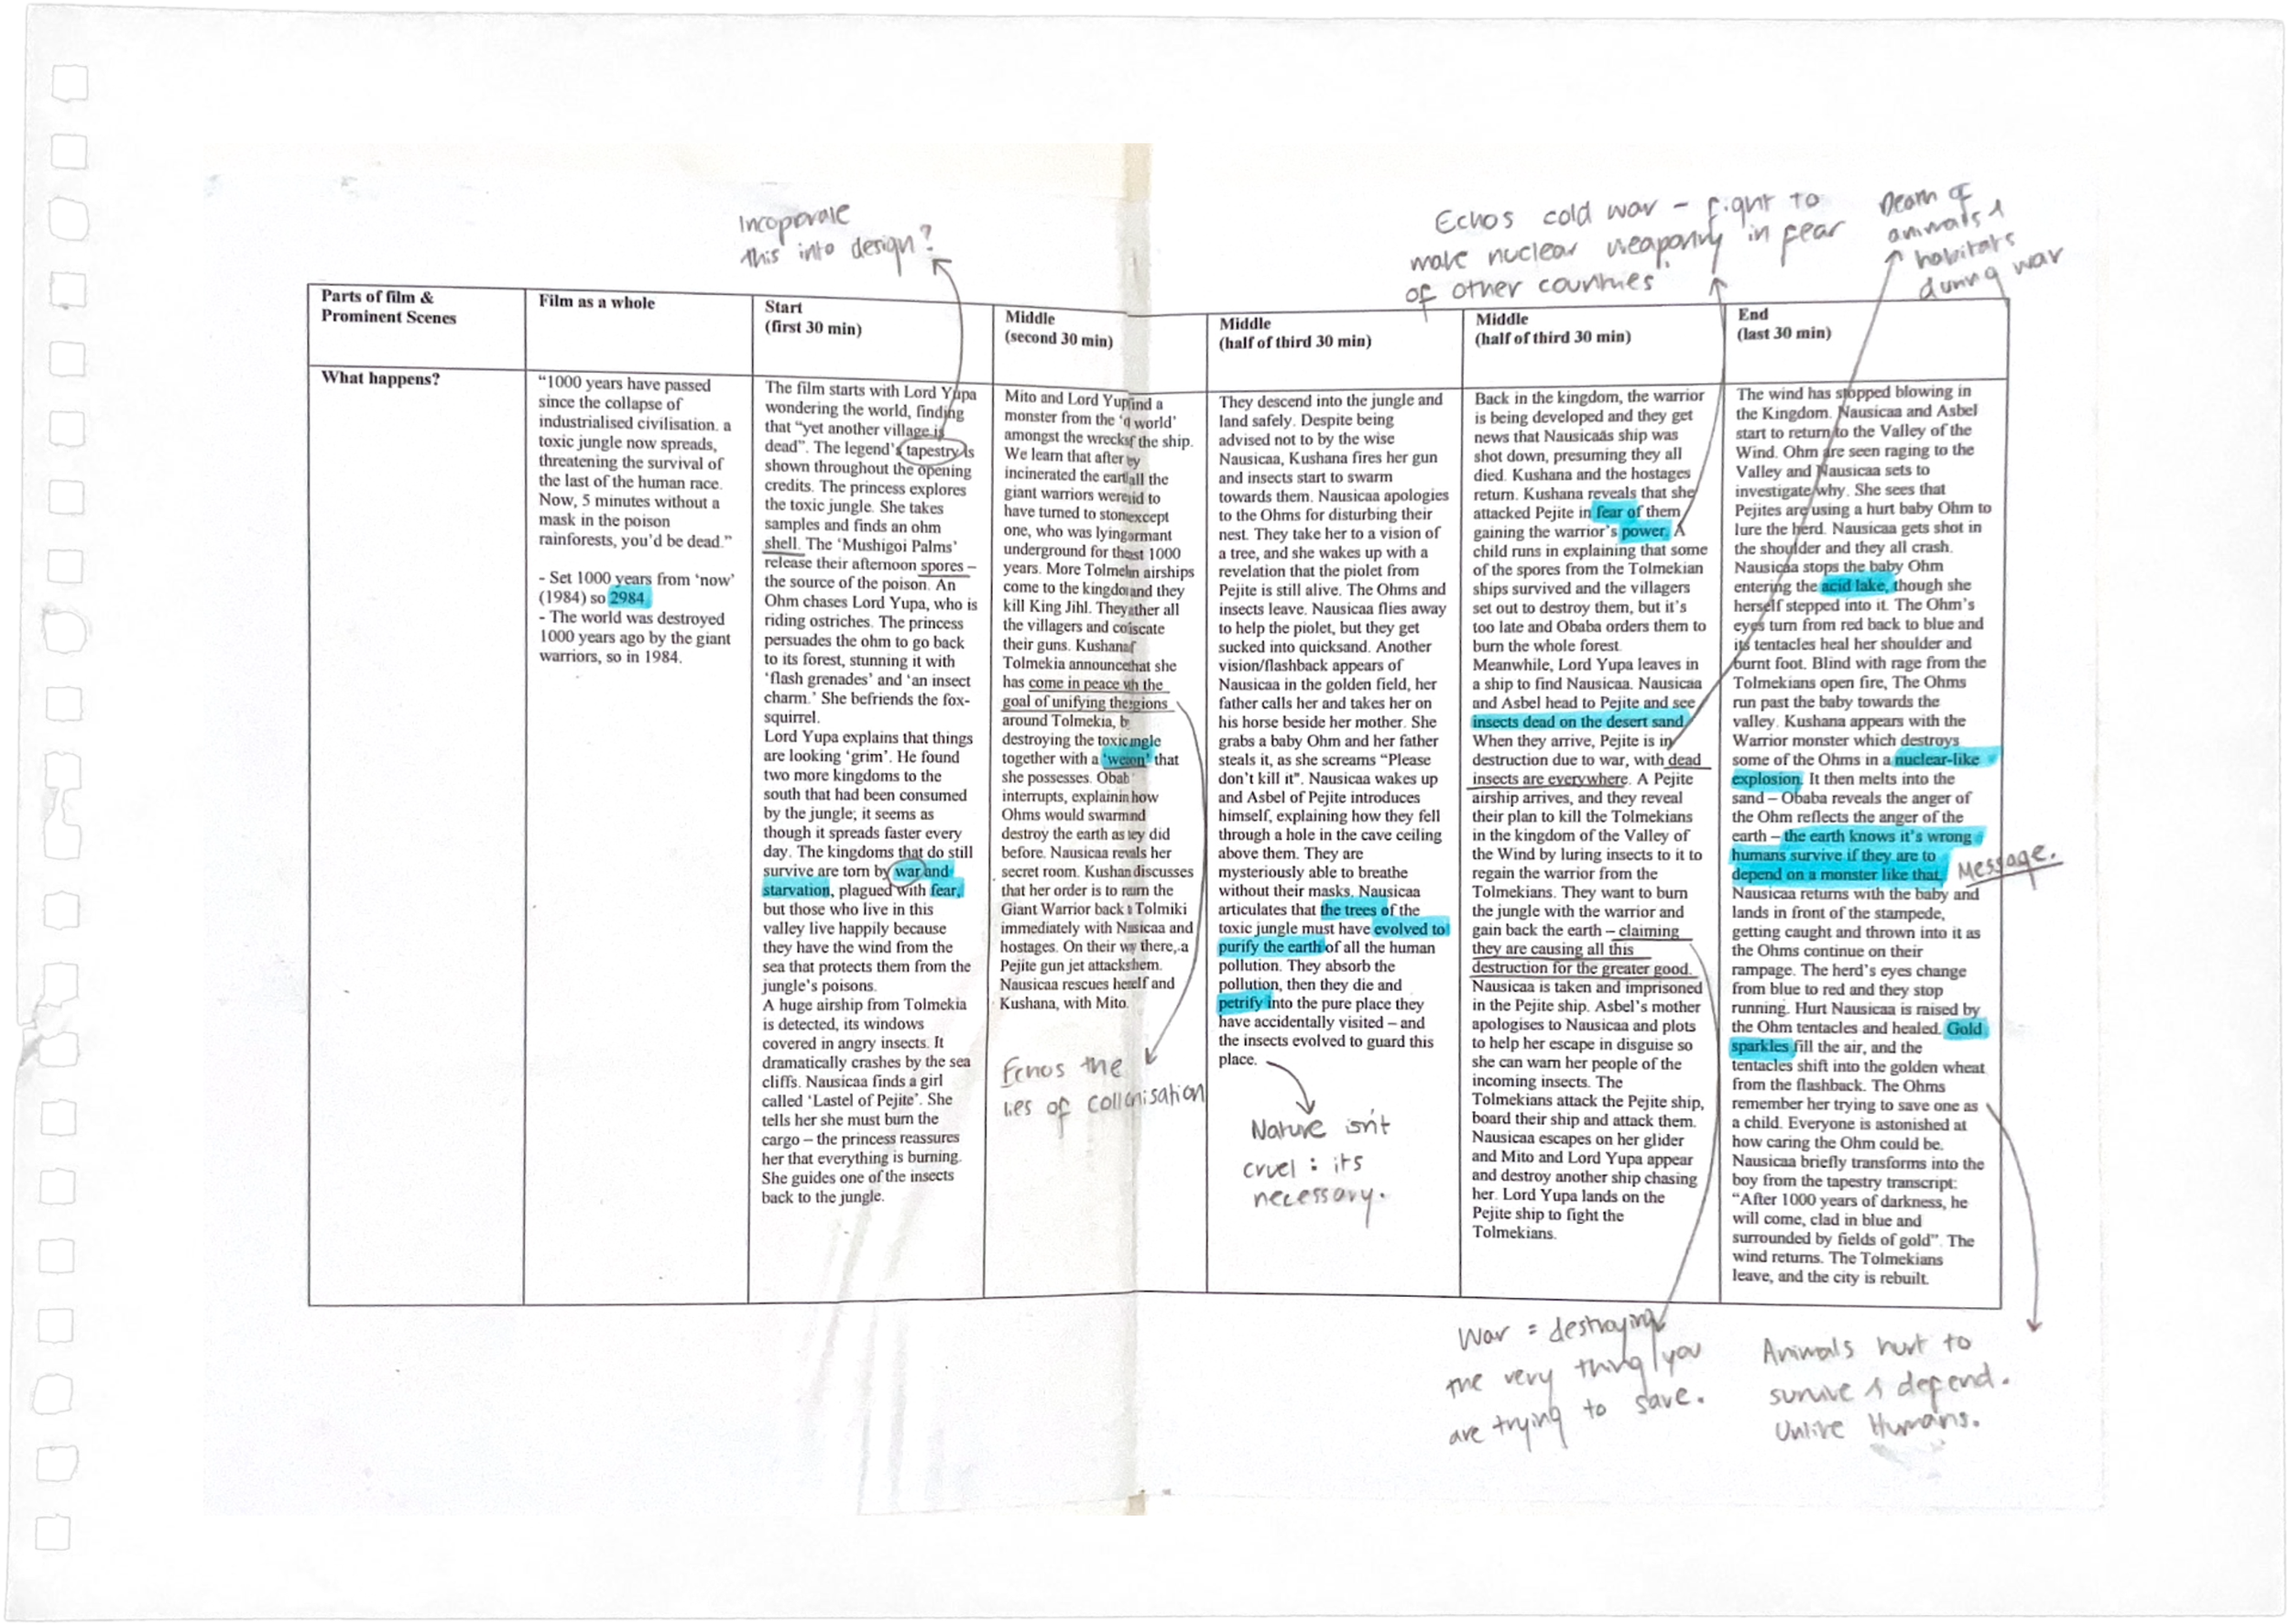 Incoporate
this into design?
Echos cold war – fight to
make nuclear weaponry in fear
of other countries
Death of
animals &
habitats
during war
Parts of film &
Prominent Scenes
Film as a whole
Start
(first 30 min)
Middle
(second 30 min)
Middle
(half of third 30 min)
Middle
(half of third 30 min)
End
(last 30 min)
What happens?
“1000 years have passed
since the collapse of
industrialised civilisation. a
toxic jungle now spreads,
threatening the survival of
the last of the human race.
Now, 5 minutes without a
mask in the poison
rainforests, you’d be dead.”
- Set 1000 years from ‘now’
(1984) so 2984.
- The world was destroyed
1000 years ago by the giant
warriors, so in 1984.
The film starts with Lord Yupa
wondering the world, finding
that “yet another village is
dead”. The legend’s tapestry is
shown throughout the opening
credits. The princess explores
the toxic jungle. She takes
samples and finds an ohm
shell. The ‘Mushigoi Palms’
release their afternoon spores –
the source of the poison. An
Ohm chases Lord Yupa, who is
riding ostriches. The princess
persuades the ohm to go back
to its forest, stunning it with
‘flash grenades’ and ‘an insect
charm.’ She befriends the fox-
squirrel.
Lord Yupa explains that things
are looking ‘grim’. He found
two more kingdoms to the
south that had been consumed
by the jungle; it seems as
though it spreads faster every
day. The kingdoms that do still
survive are torn by war and
starvation, plagued with fear,
but those who live in this
valley live happily because
they have the wind from the
sea that protects them from the
jungle’s poisons.
A huge airship from Tolmekia
is detected, its windows
covered in angry insects. It
dramatically crashes by the sea
cliffs. Nausicaa finds a girl
called ‘Lastel of Pejite’. She
tells her she must burn the
cargo – the princess reassures
her that everything is burning.
She guides one of the insects
back to the jungle.
Mito and Lord a
monster from the world’
amongst the the ship.
We learn that after
incinerated the the
giant warriors to
have turned to
one, who was
underground for 1000
years. More airships
come to the they
kill King Jihl. all
the villagers and
their guns.
Tolmekia she
has come in peace the
goal of unifying
around Tolmekia,
destroying the
together with a that
she possesses.
interrupts, how
Ohms would
destroy the earth as did
before. Nausicaa her
secret room. discusses
that her order is to the
Giant Warrior back Tolmiki
immediately with and
hostages. On their there, a
Pejite gun jet
Nausicaa rescues and
Kushana, with Mito.
Echos the
lies of collonisation
They descend into the jungle and
land safely. Despite being
advised not to by the wise
Nausicaa, Kushana fires her gun
and insects start to swarm
towards them. Nausicaa apologies
to the Ohms for disturbing their
nest. They take her to a vision of
a tree, and she wakes up with a
revelation that the piolet from
Pejite is still alive. The Ohms and
insects leave. Nausicaa flies away
to help the piolet, but they get
sucked into quicksand. Another
vision/flashback appears of
Nausicaa in the golden field, her
father calls her and takes her on
his horse beside her mother. She
grabs a baby Ohm and her father
steals it, as she screams “Please
don’t kill it”. Nausicaa wakes up
and Asbel of Pejite introduces
himself, explaining how they fell
through a hole in the cave ceiling
above them. They are
mysteriously able to breathe
without their masks. Nausicaa
articulates that the trees of the
toxic jungle must have evolved to
purify the earth of all the human
pollution. They absorb the
pollution, then they die and
petrify into the pure place they
have accidentally visited – and
the insects evolved to guard this
place.
Nature isn't
cruel : its
necessary.
Back in the kingdom, the warrior
is being developed and they get
news that Nausicaäs ship was
shot down, presuming they all
died. Kushana and the hostages
return. Kushana reveals that she
attacked Pejite in fear of them
gaining the warrior’s power. A
child runs in explaining that some
of the spores from the Tolmekian
ships survived and the villagers
set out to destroy them, but it’s
too late and Obaba orders them to
burn the whole forest.
Meanwhile, Lord Yupa leaves in
a ship to find Nausicaa. Nausicaa
and Asbel head to Pejite and see
insects dead on the desert sand.
When they arrive, Pejite is in
destruction due to war, with dead
insects are everywhere. A Pejite
airship arrives, and they reveal
their plan to kill the Tolmekians
in the kingdom of the Valley of
the Wind by luring insects to it to
regain the warrior from the
Tolmekians. They want to burn
the jungle with the warrior and
gain back the earth – claiming
they are causing all this
destruction for the greater good.
Nausicaa is taken and imprisoned
in the Pejite ship. Asbel’s mother
apologises to Nausicaa and plots
to help her escape in disguise so
she can warn her people of the
incoming insects. The
Tolmekians attack the Pejite ship,
board their ship and attack them.
Nausicaa escapes on her glider
and Mito and Lord Yupa appear
and destroy another ship chasing
her. Lord Yupa lands on the
Pejite ship to fight the
Tolmekians.
War = destroying
the very thing you
are trying to save.
The wind has stopped blowing in
the Kingdom. Nausicaa and Asbel
start to return to the Valley of the
Wind. Ohm are seen raging to the
Valley and Nausicaa sets to
investigate why. She sees that
Pejites are using a hurt baby Ohm to
lure the herd. Nausicaa gets shot in
the shoulder and they all crash.
Nausicaa stops the baby Ohm
entering the acid lake, though she
herself stepped into it. The Ohm’s
eyes turn from red back to blue and
its tentacles heal her shoulder and
burnt foot. Blind with rage from the
Tolmekians open fire, The Ohms
run past the baby towards the
valley. Kushana appears with the
Warrior monster which destroys
some of the Ohms in a nuclear-like
explosion. It then melts into the
sand – Obaba reveals the anger of
the Ohm reflects the anger of the
earth – the earth knows it’s wrong
humans survive if they are to
depend on a monster like that.
Nausicaa returns with the baby and
lands in front of the stampede,
getting caught and thrown into it as
the Ohms continue on their
rampage. The herd’s eyes change
from blue to red and they stop
running. Hurt Nausicaa is raised by
the Ohm tentacles and healed. Gold
sparkles fill the air, and the
tentacles shift into the golden wheat
from the flashback. The Ohms
remember her trying to save one as
a child. Everyone is astonished at
how caring the Ohm could be.
Nausicaa briefly transforms into the
boy from the tapestry transcript:
“After 1000 years of darkness, he
will come, clad in blue and
surrounded by fields of gold”. The
wind returns. The Tolmekians
leave, and the city is rebuilt.
Message.
Animals hurt to
survive & depend.
Unlike Humans.